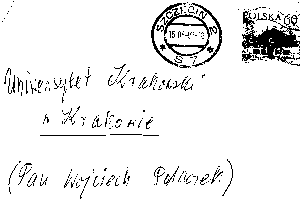 SZCZECIN 2
POLSKA 60
S 7
Uniwersytet Krakowski
w Krakowie
(Pan Wojciech Polaczek)